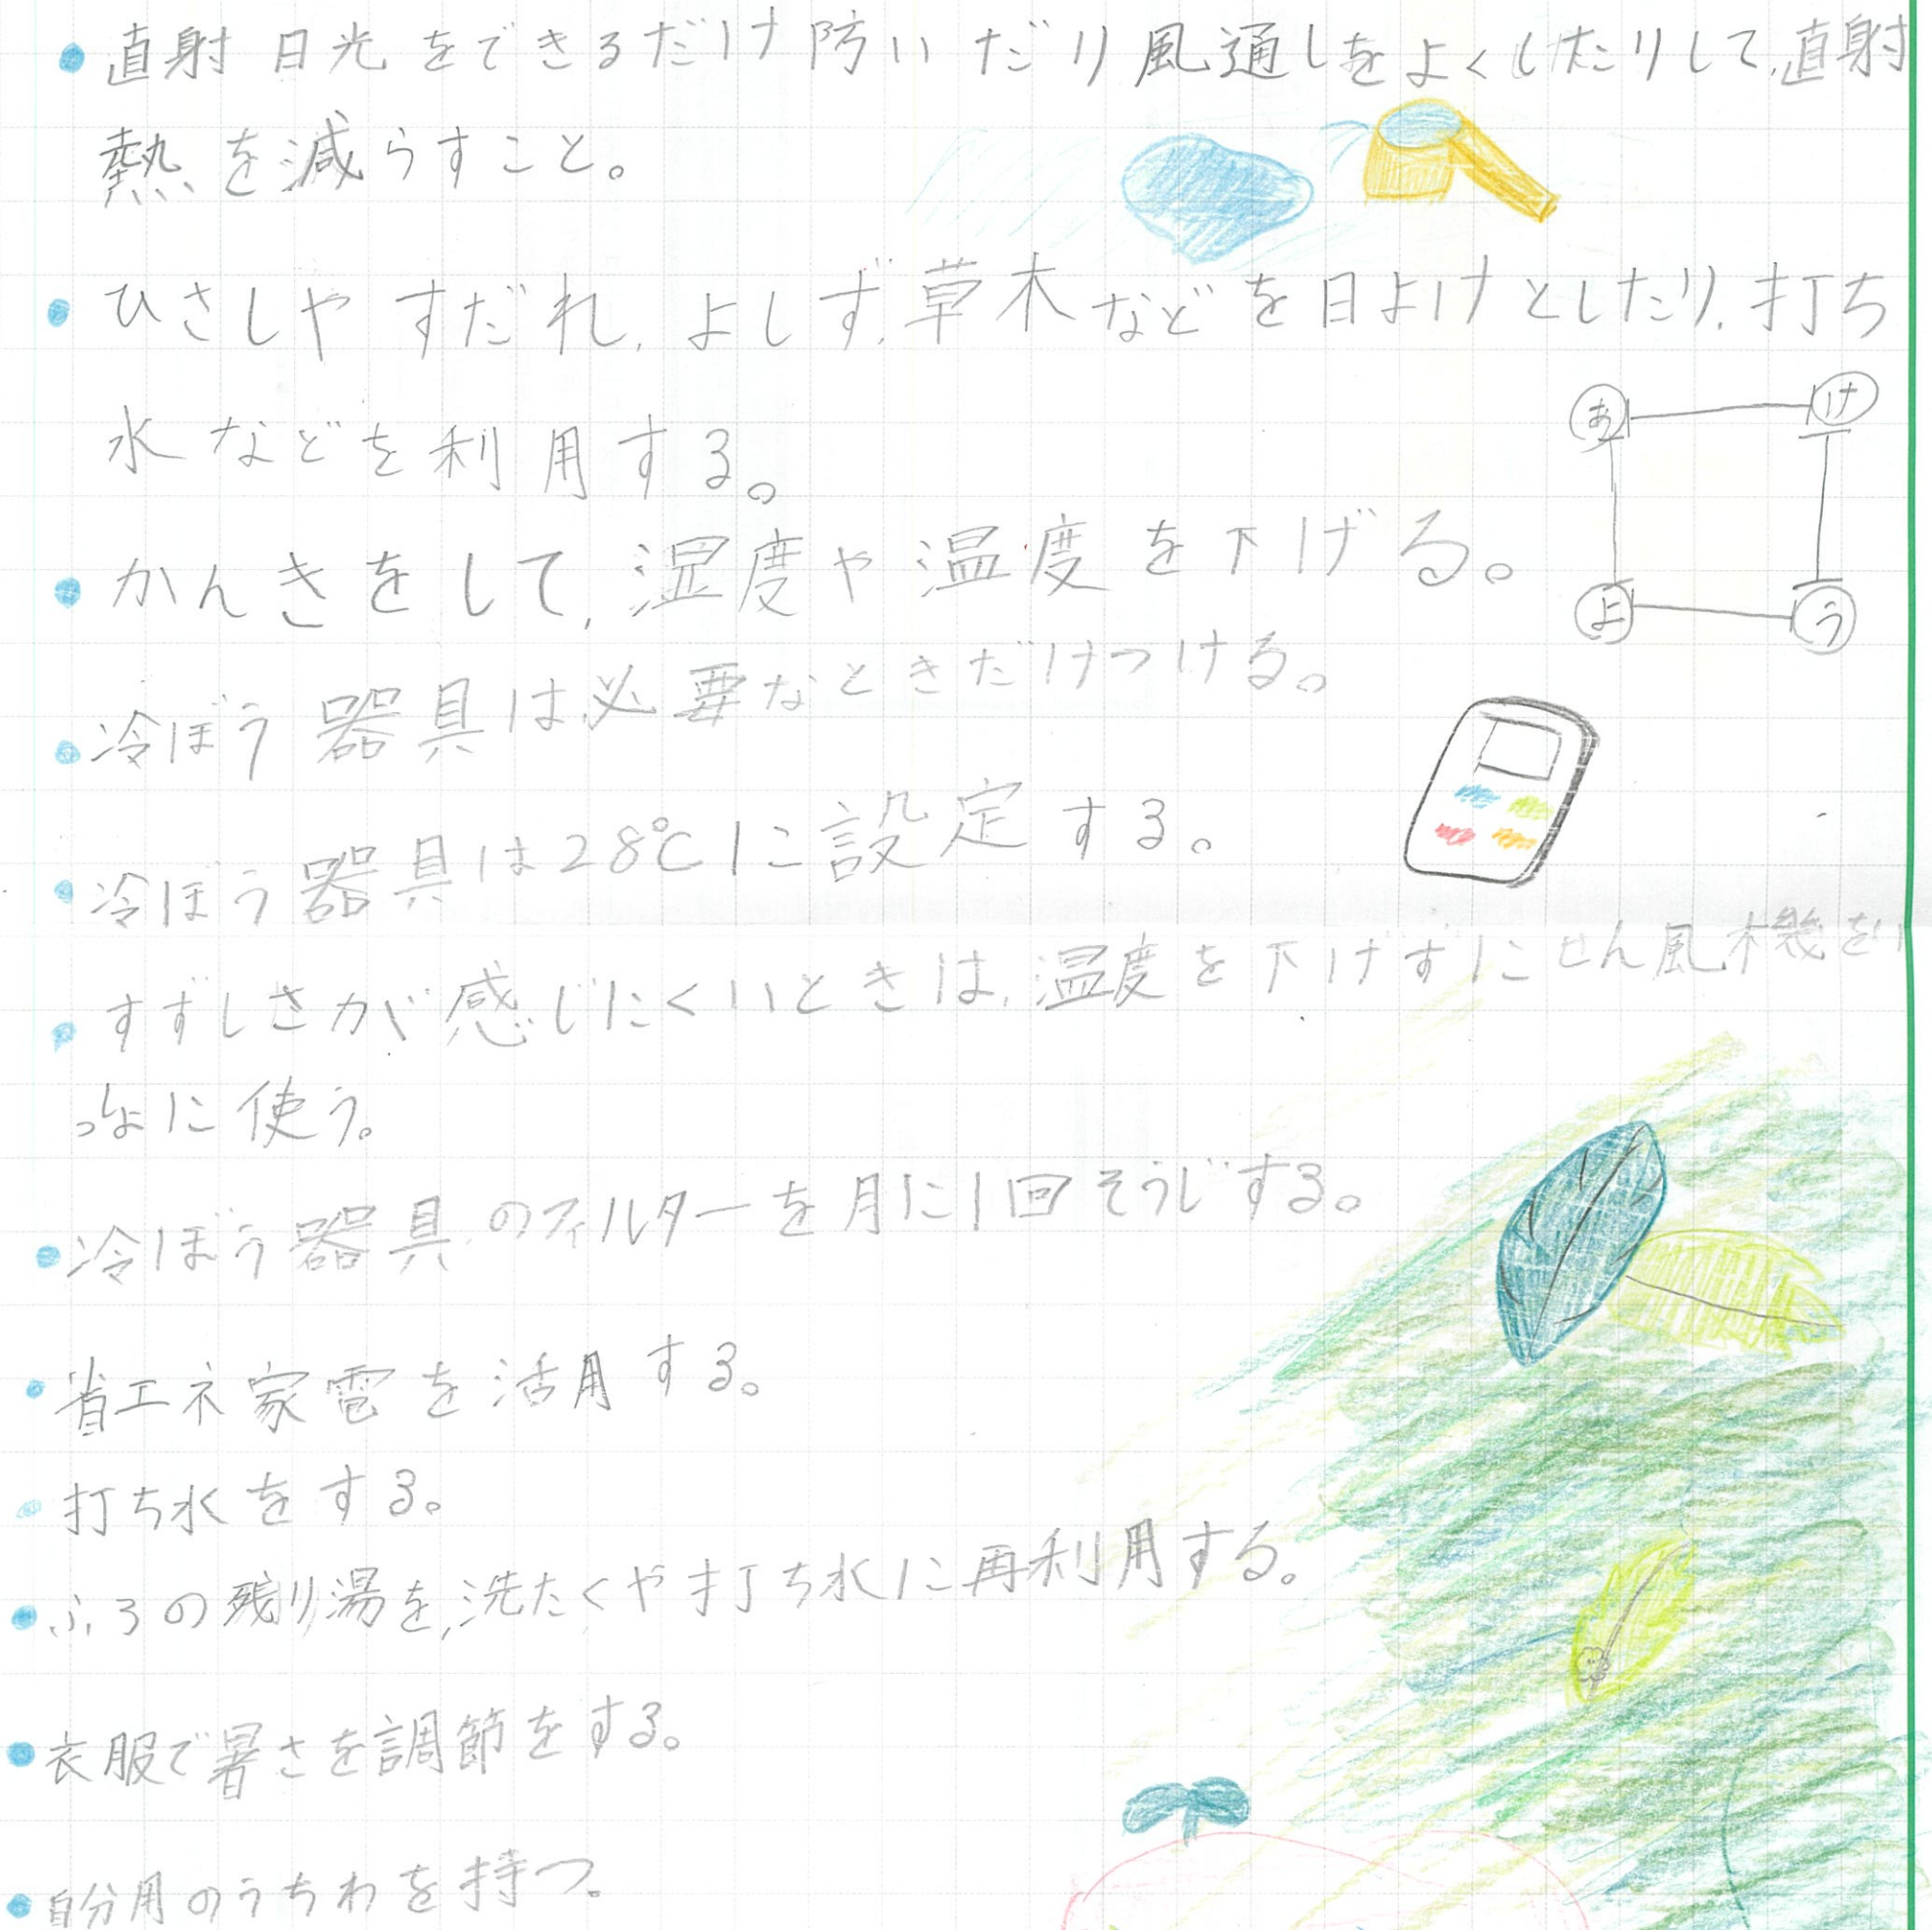 直射日光をできるだけ防いだり風通しをよくしたりして、直射
熱を減らすこと。
ひさしやすだれ、よしず、草木などを日よけとしたり、打ち
水などを利用する。
あ け
よ う
かんきをして、湿度や温度を下げる。
冷ぼう器具は必要なときだけつける。
冷ぼう器具は28℃に設定する。
すずしさが感じにくいときは、温度を下げずにせん風機をい
っしょに使う。
冷ぼう器具のフィルターを月に1回そうじする。
省エネ家電を活用する。
打ち水をする。
ふろの残り湯を、洗たくや打ち水に再利用する。
衣服で暑さを調節をする。
自分用のうちわを持つ。